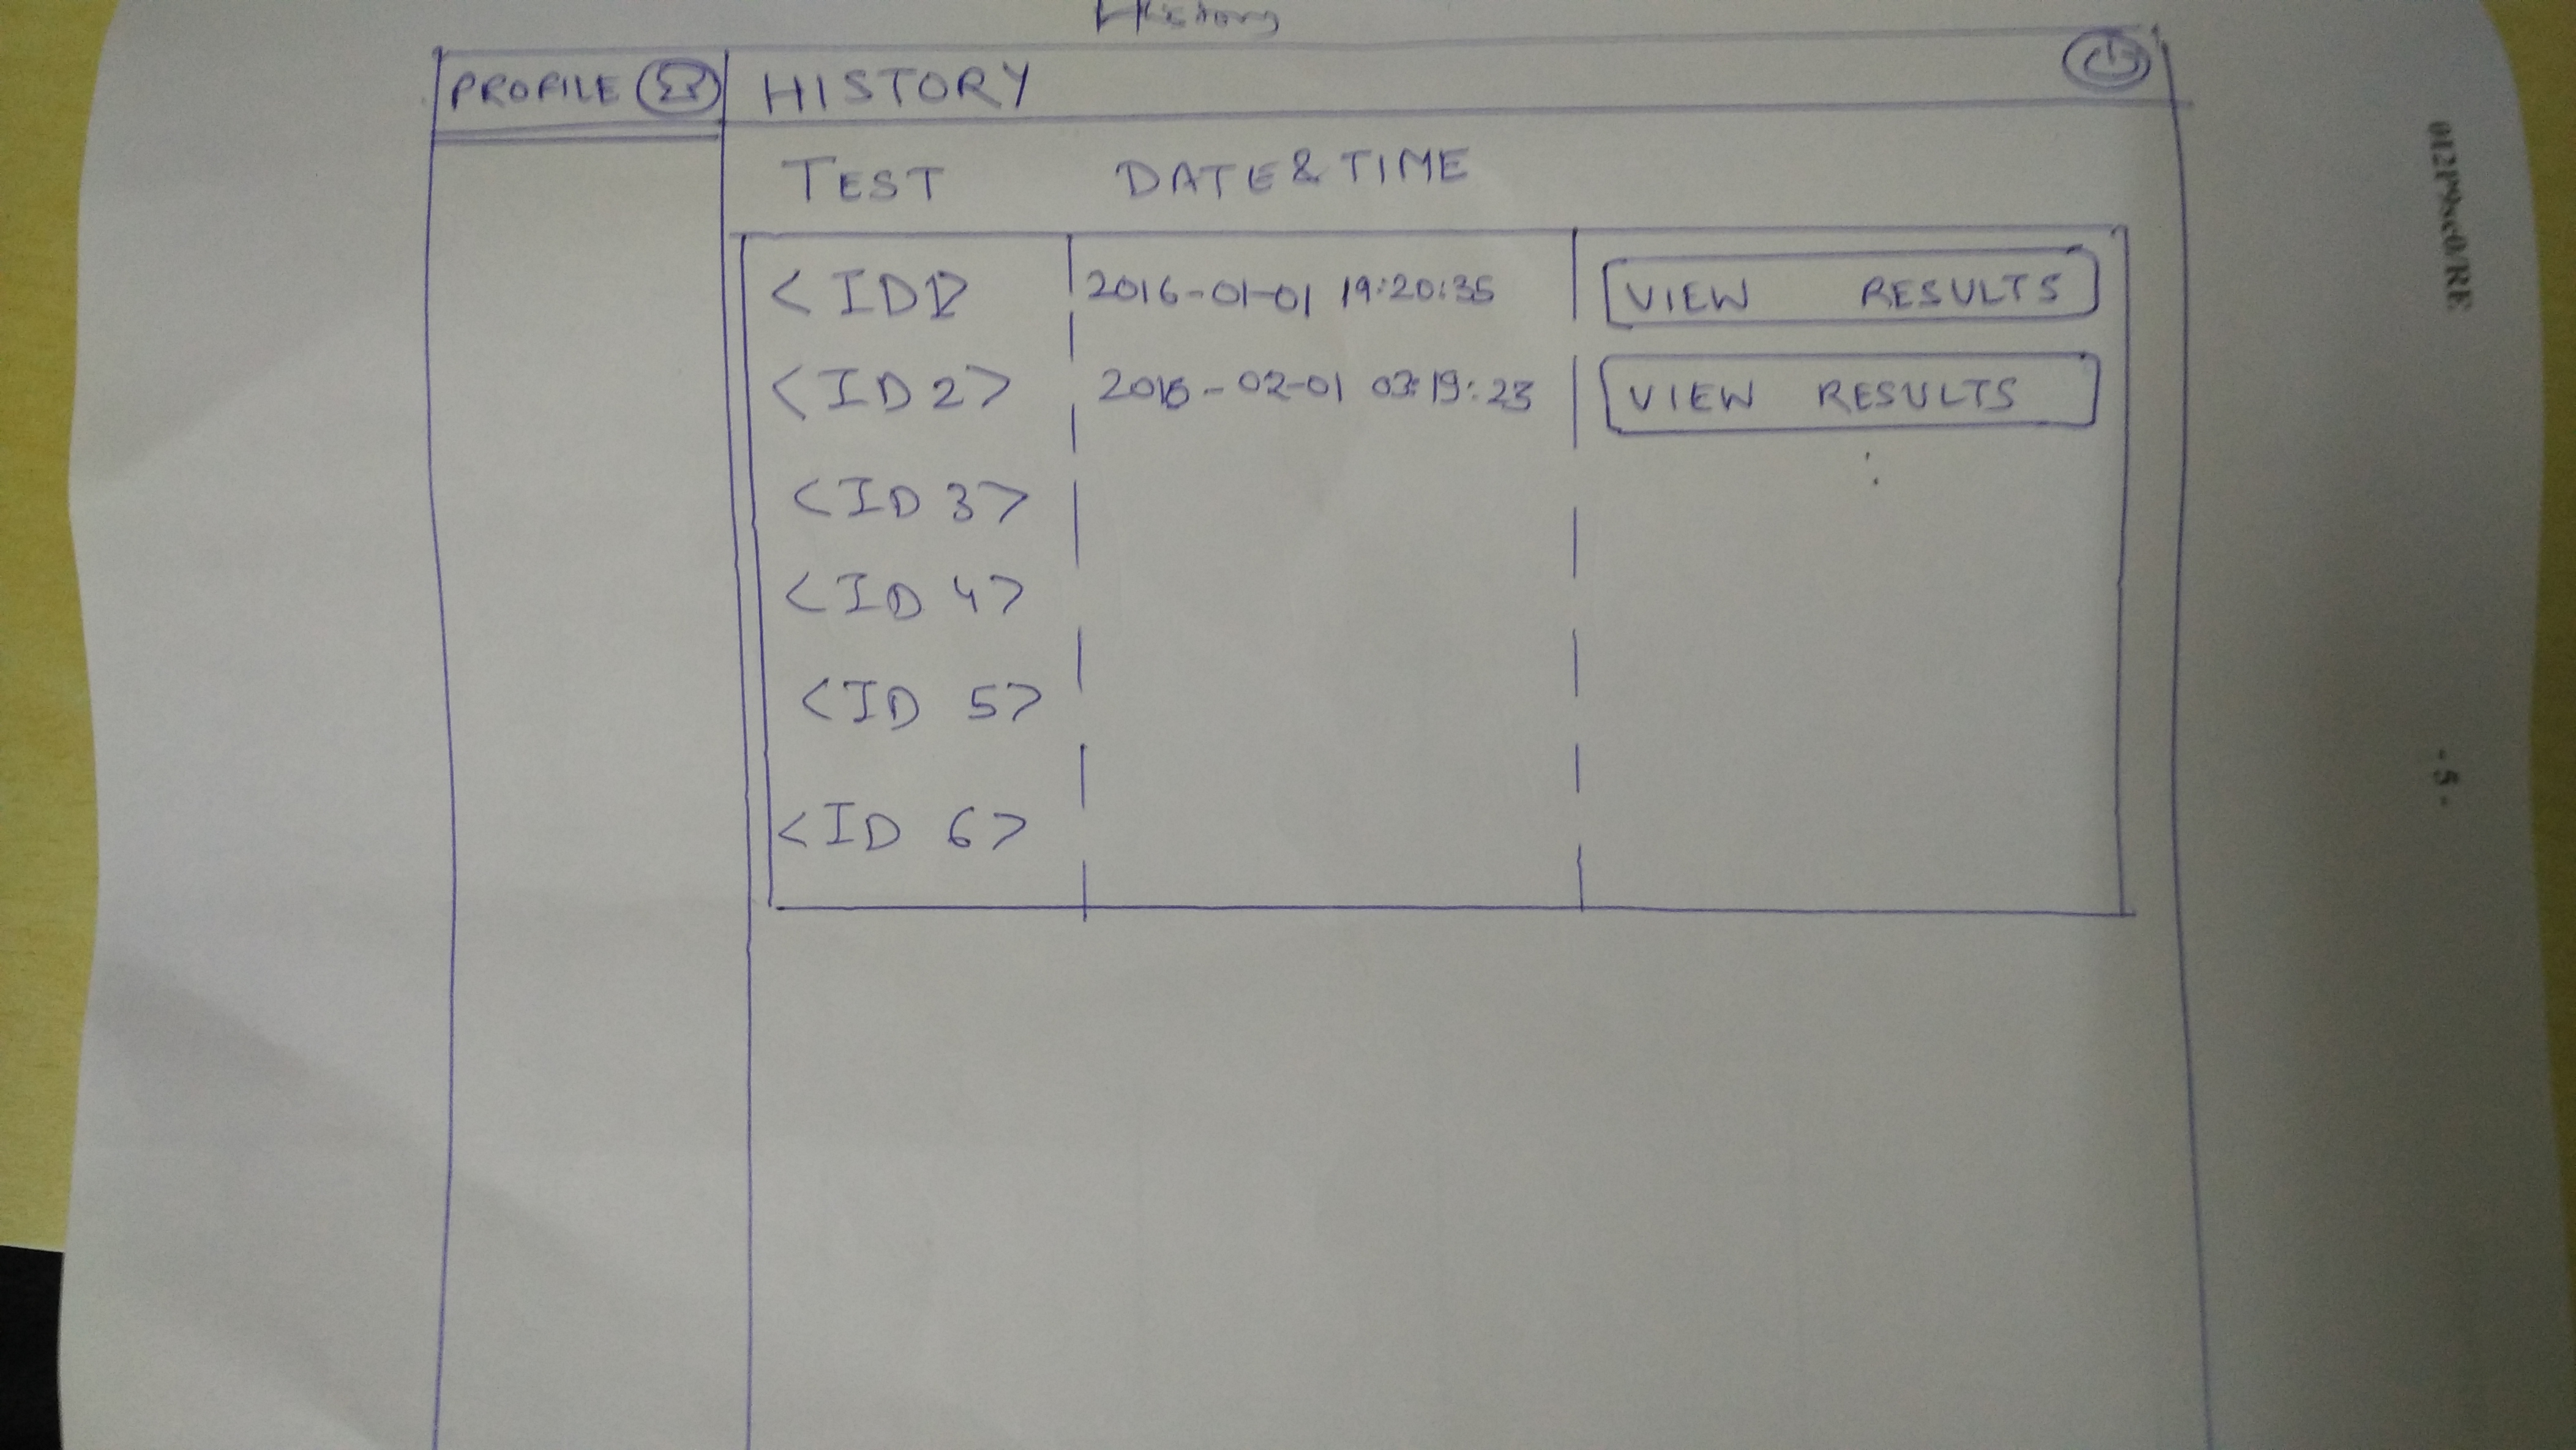 History
PROFILE HISTORY
TEST DATE & TIME
<ID1> 2016-01-01 19:20:35 VIEW RESULTS
<ID2> 2016-02-01 03:19:23 VIEW RESULTS
<ID 3>
<ID 4>
<ID 5>
<ID 6>
- 5 -